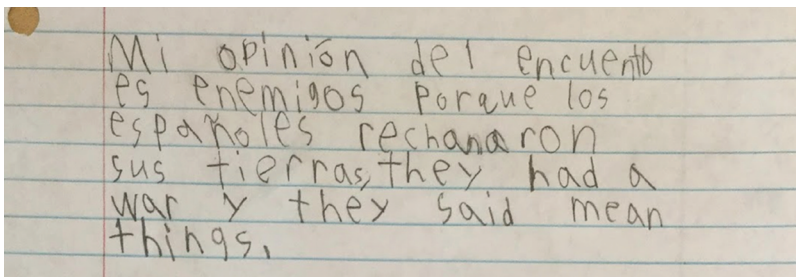 Mi opinión del encuento
es enemigos porque los
españoles rechanaron
sus tierras, they had a
war y they said mean
things.